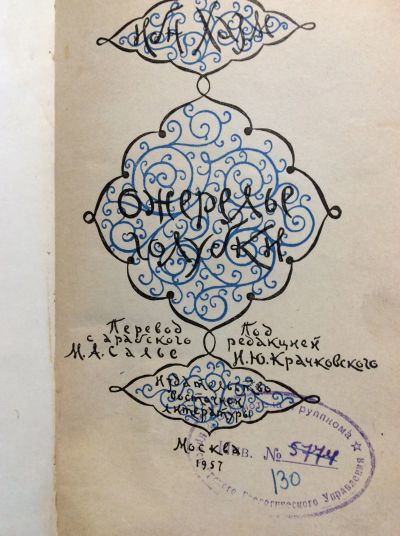 Ибн Хазм
Ожерелье
голубки
Перевод
с арабского
М.А.Салье
Под
редакцией
И.Ю.Крачковского
Издательство
восточной
литературы
Москва
1957
Инв. № 5774
130
группкома
Геологического Управления